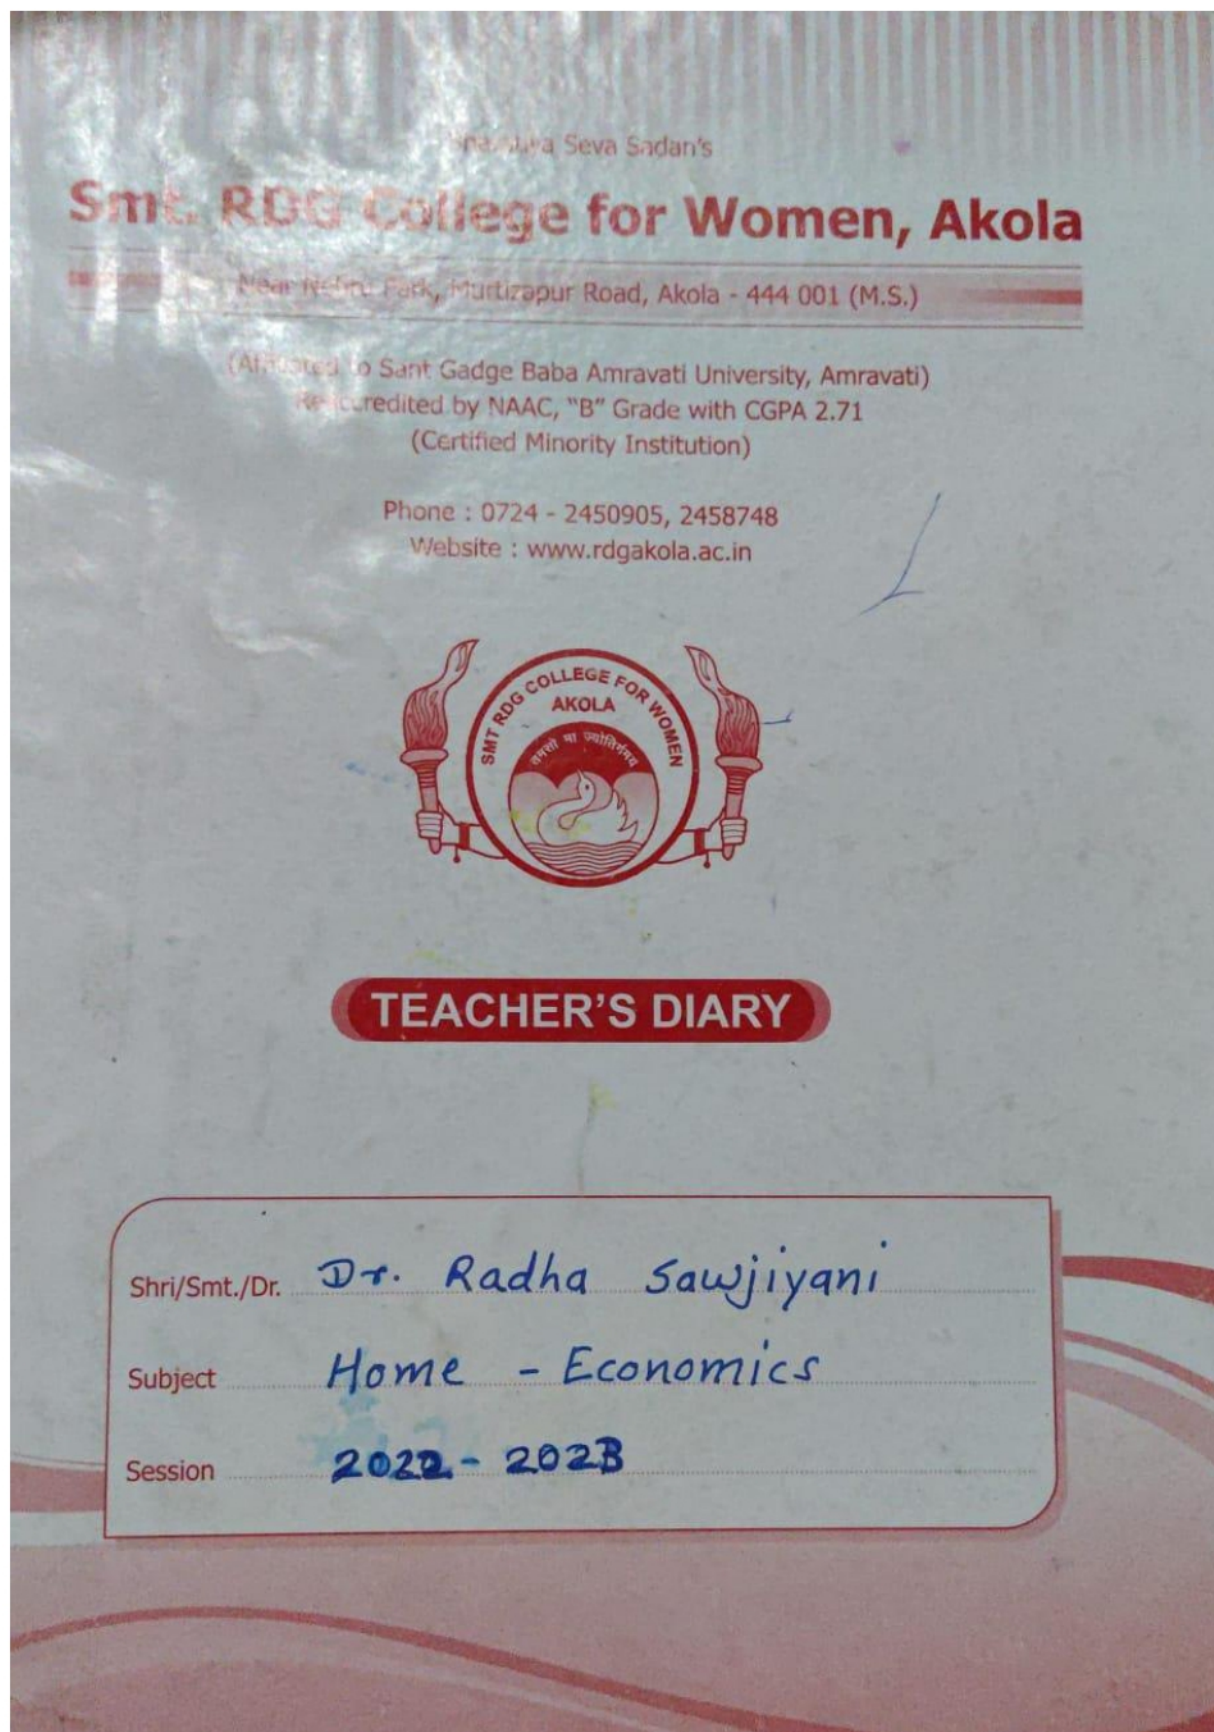 Seva Sadan's
Smt. RDG College for Women, Akola
Near Nehru Park, Murtizapur Road, Akola - 444 001 (M.S.)
(Affiliated to Sant Gadge Baba Amravati University, Amravati)
Reaccredited by NAAC, "B" Grade with CGPA 2.71
(Certified Minority Institution)
Phone : 0724 - 2450905, 2458748
Website : www.rdgakola.ac.in
SMT RDG COLLEGE FOR WOMEN
AKOLA
तमसो मा ज्योतिर्गमय
TEACHER'S DIARY
Shri/Smt./Dr. Dr. Radha Sawjiyani
Subject Home - Economics
Session 2022 - 2023